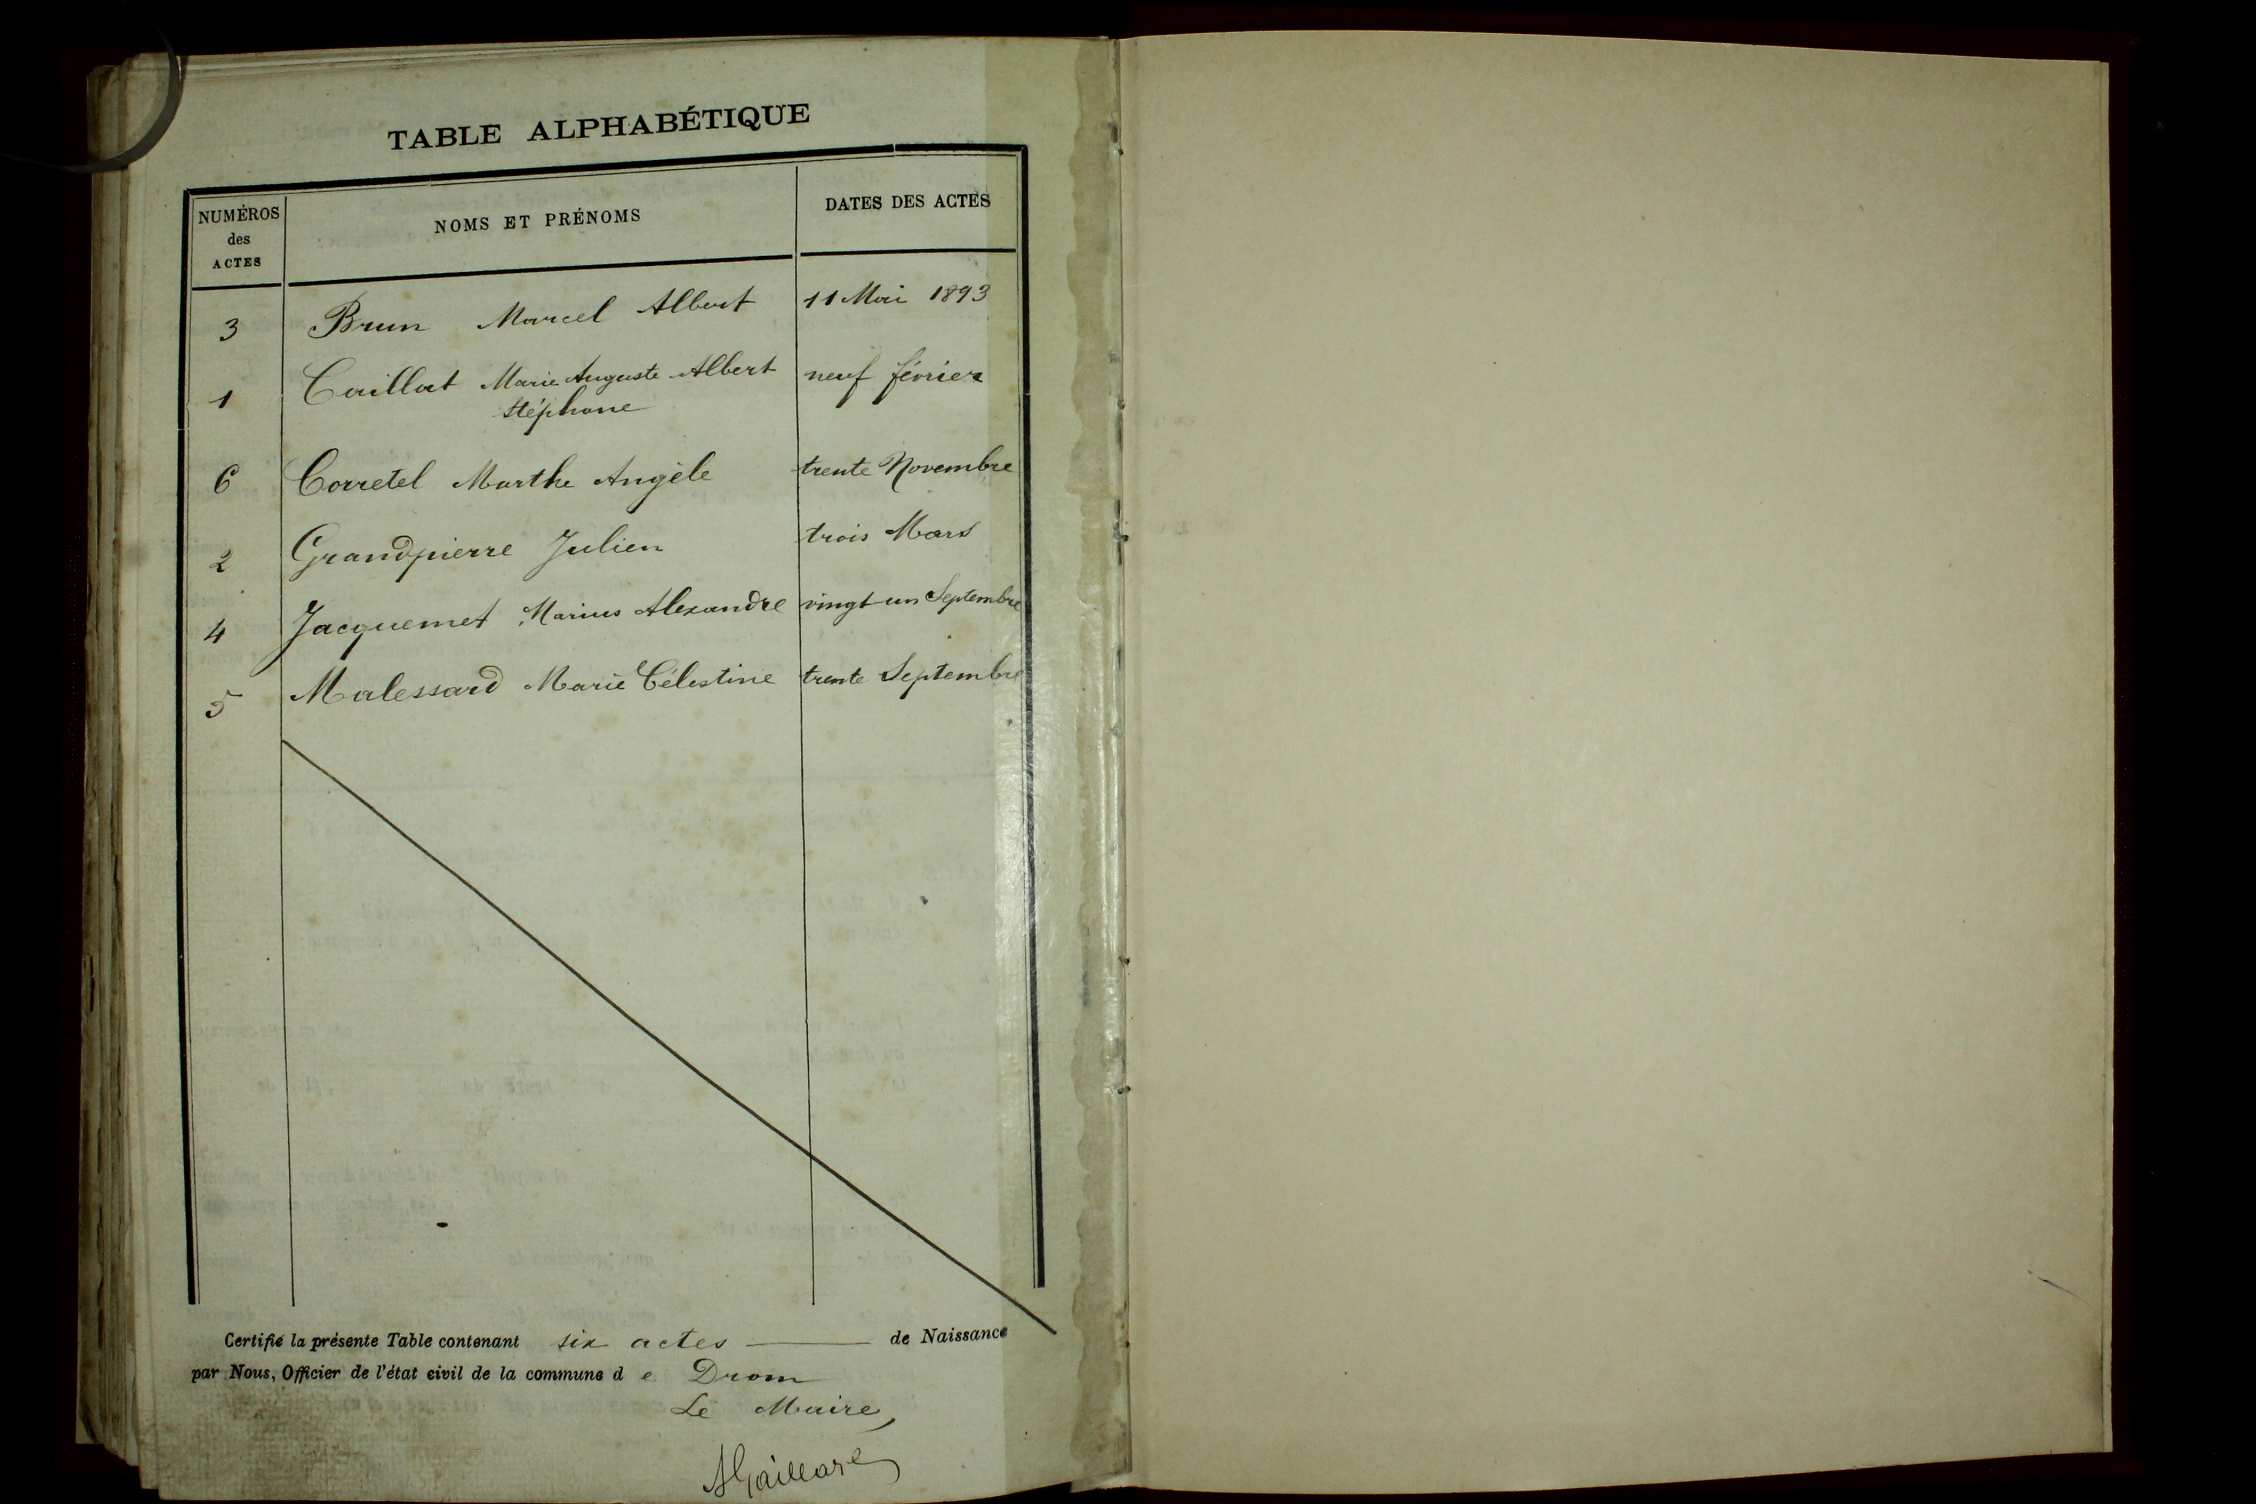 TABLE ALPHABÉTIQUE
NUMÉROS des ACTES NOMS ET PRÉNOMS DATES DES ACTES
3 Brun Marcel Albert 11 Mai 1893
1 Caillat Marie Auguste Albert neuf février
Stéphane
6 Corretel Marthe Angèle trente Novembre
2 Grandpierre Julien trois Mars
4 Jacquemet Marius Alexandre vingt-un Septembre
5 Malessard Marie Célestine trente Septembre
Certifié la présente Table contenant six actes de Naissance
par Nous, Officier de l'état civil de la commune de Drom
Le Maire,